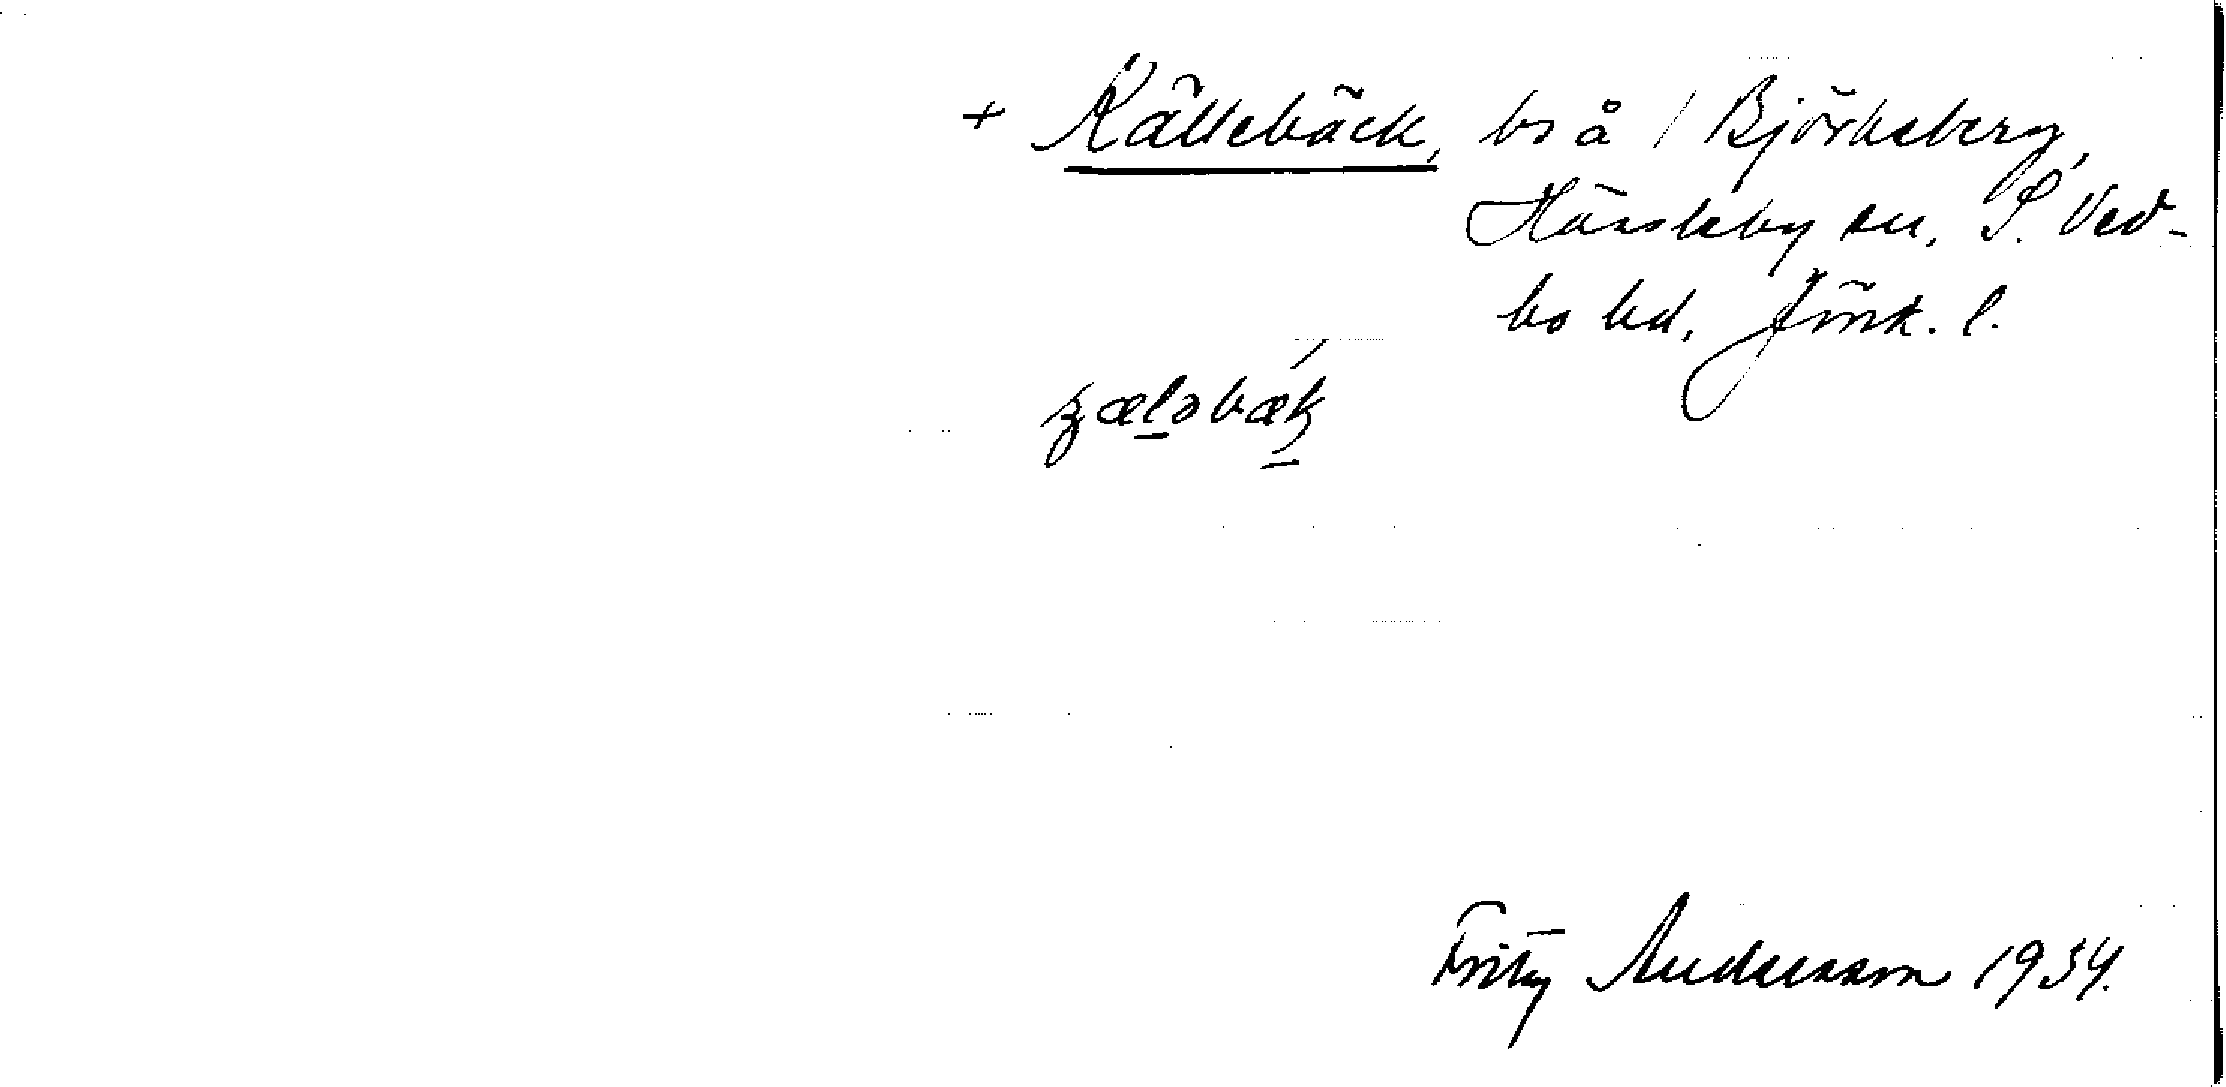 + Källebäck, bs å / Björkeberg,
Hässleby sn, S. Ved-
bo hd, Jönk. l.
Fritz Andersson 1934.